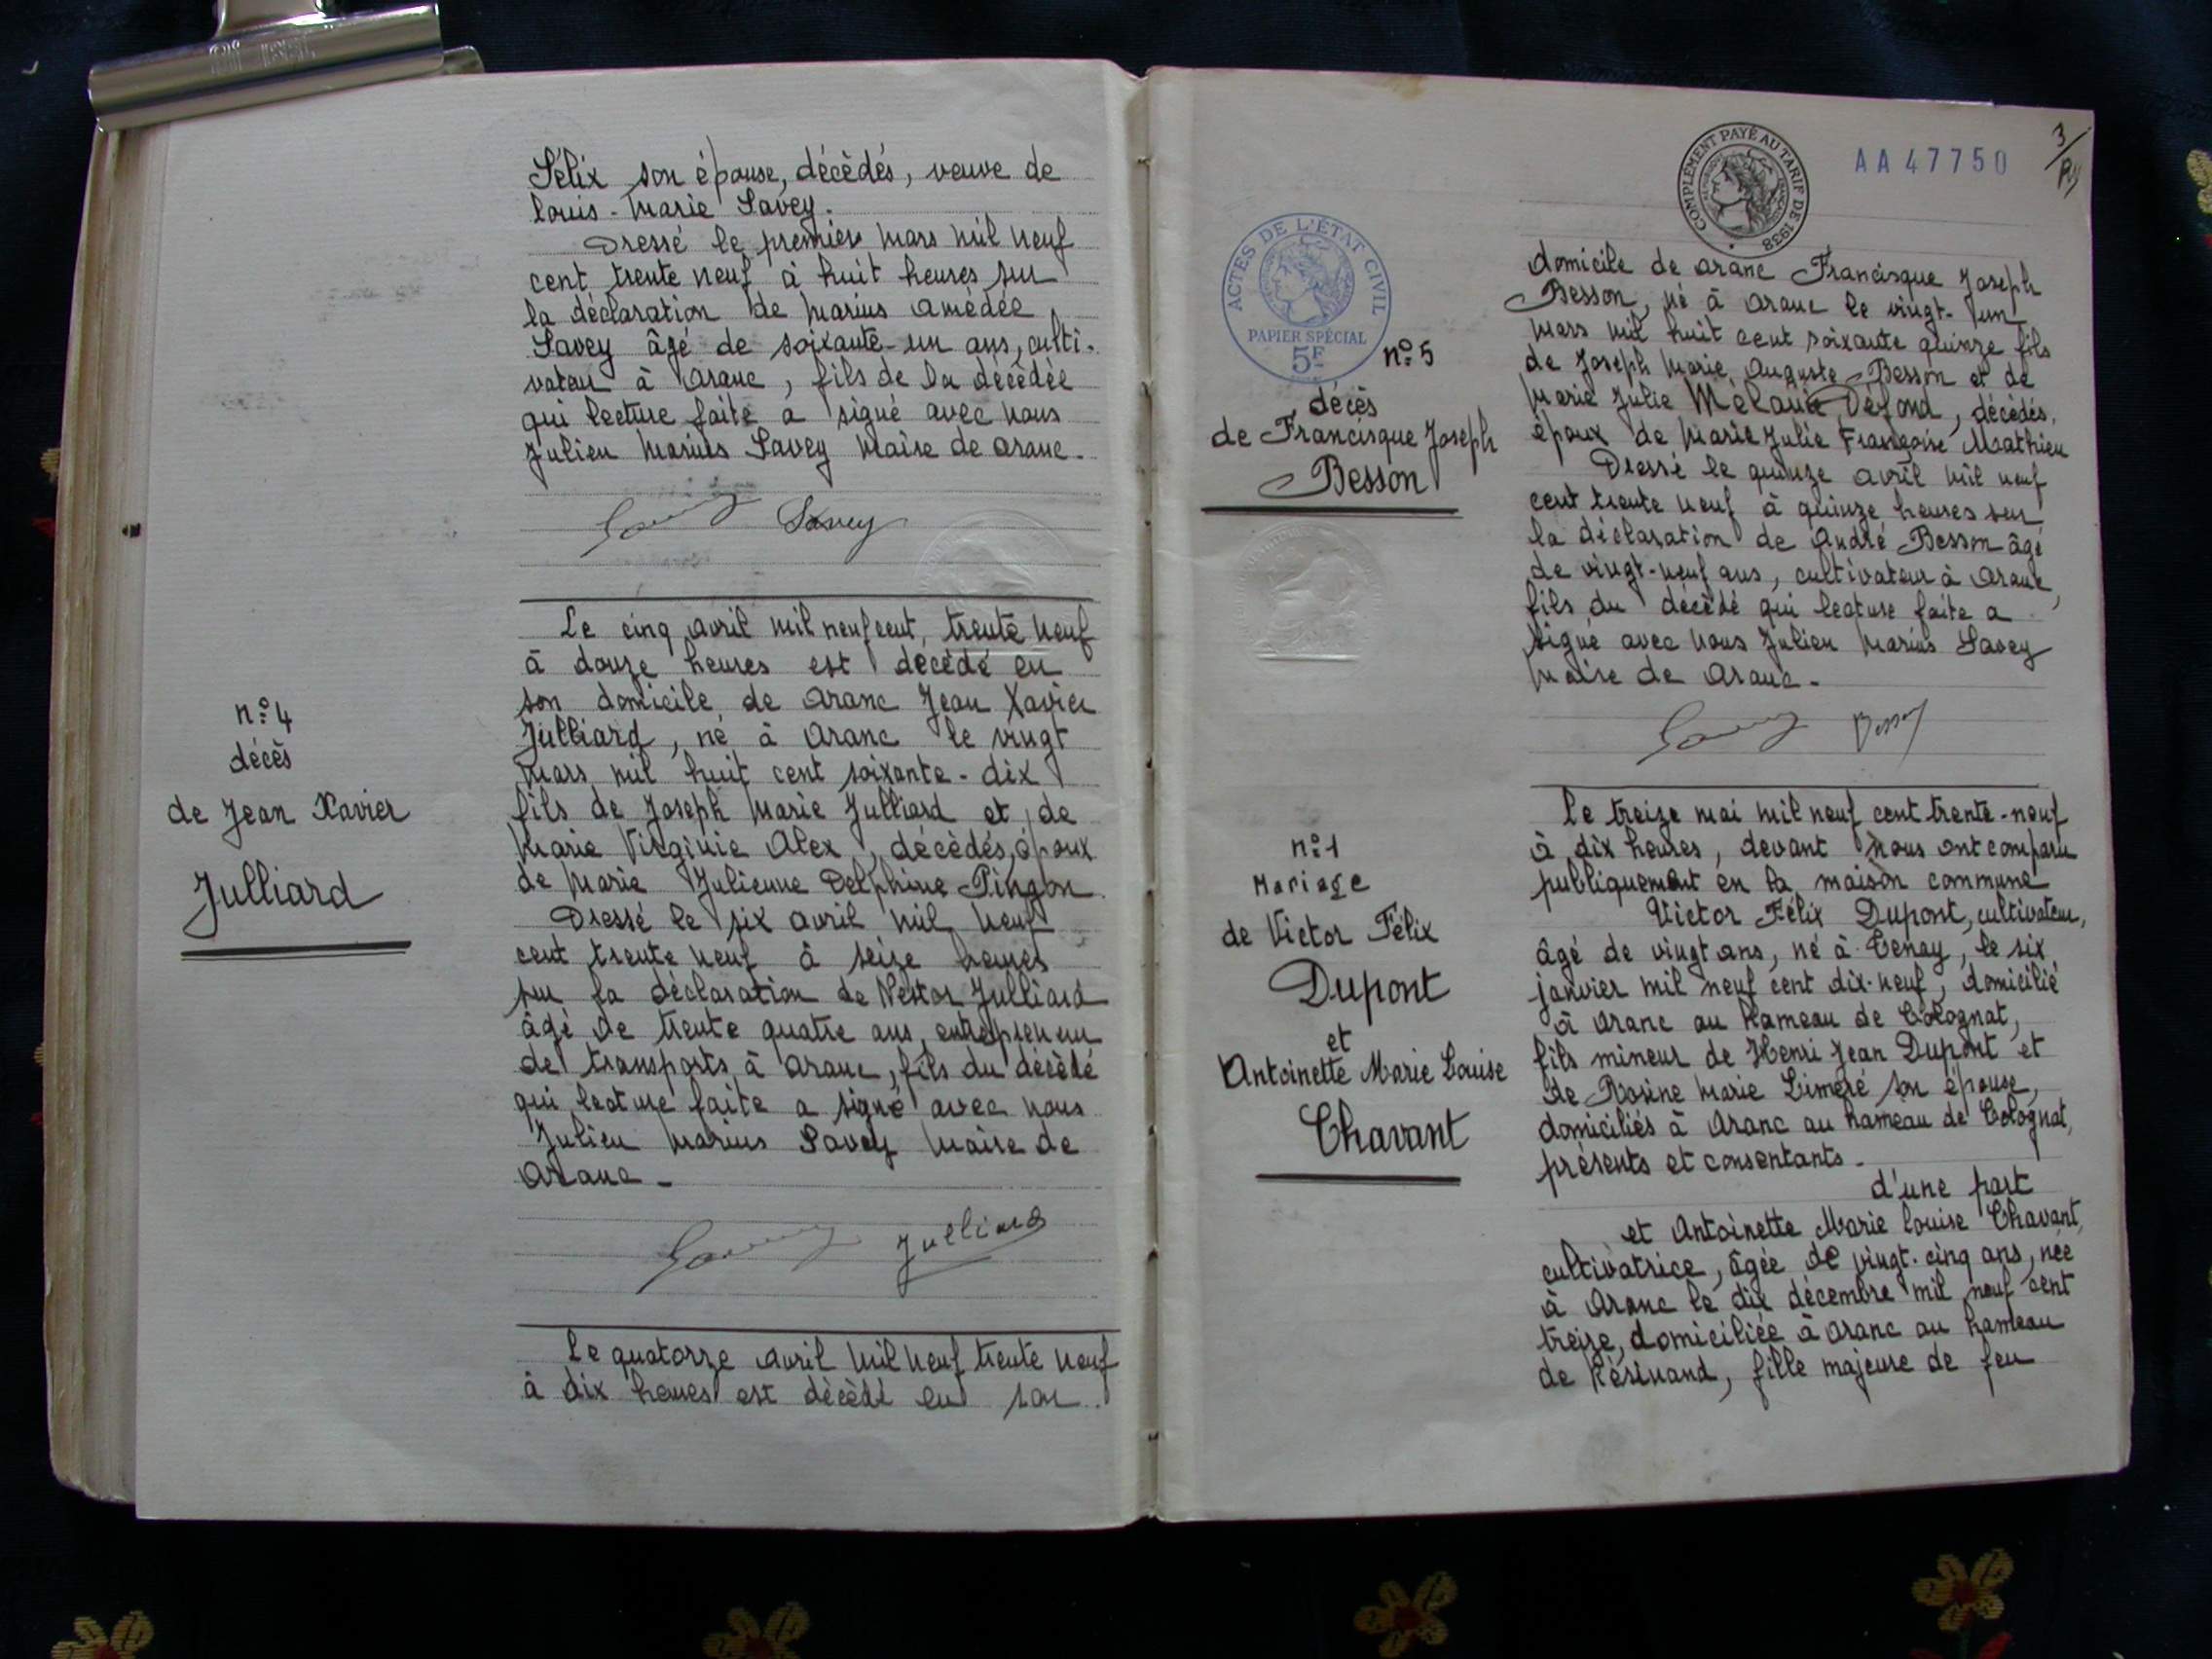 Félix son épouse, décédés, veuve de
Louis-Marie Savey.
Dressé le premier mars mil neuf
cent trente neuf à huit heures sur
la déclaration de Marius Amédée
Savey âgé de soixante-un ans, culti-
vateur à Aranc, fils de la décédée
qui lecture faite a signé avec nous
Julien Marius Savey Maire de Aranc.
Savey
n° 4
décès
de Jean Xavier
Julliard
Le cinq avril mil neuf cent, trente neuf
à douze heures est décédé en
son domicile de Aranc Jean Xavier
Julliard, né à Aranc le vingt
mars mil huit cent soixante-dix
fils de Joseph Marie Julliard et de
Marie Virginie Alex, décédés, époux
de Marie Julienne Delphine Pingon
Dressé le six avril mil neuf
cent trente neuf à seize heures
sur la déclaration de Nestor Julliard
âgé de trente quatre ans, entrepreneur
de transports à Aranc, fils du décédé
qui lecture faite a signé avec nous
Julien Marius Savey Maire de
Aranc -
Julliard
Le quatorze avril mil neuf trente neuf
à dix heures est décédé en son
COMPLÉMENT PAYÉ AU TARIF DE 1938
AA 47750
3
ACTES DE L'ÉTAT CIVIL
PAPIER SPÉCIAL
5F
n° 5
décès
de Francisque Joseph
Besson
domicile de Aranc Francisque Joseph
Besson, né à Aranc le vingt-un
mars mil huit cent soixante quinze fils
de Joseph Marie Auguste Besson et de
Marie Julie Mélanie Defond, décédés,
époux de Marie Julie Françoise Mathieu
Dressé le quinze avril mil neuf
cent trente neuf à quinze heures sur
la déclaration de André Besson âgé
de vingt-neuf ans, cultivateur à Aranc,
fils du décédé qui lecture faite a
signé avec nous Julien Marius Savey
Maire de Aranc -
n° 1
Mariage
de Victor Félix
Dupont
et
Antoinette Marie Louise
Chavant
Le treize mai mil neuf cent trente-neuf
à dix heures, devant Nous ont comparu
publiquement en la maison commune
Victor Félix Dupont, cultivateur,
âgé de vingt ans, né à Tenay, le six
janvier mil neuf cent dix-neuf, domicilié
à Aranc au hameau de Colognat,
fils mineur de Henri Jean Dupont et
de Rosine Marie Luméré son épouse,
domiciliés à Aranc au hameau de Colognat,
présents et consentants -
d'une part
et Antoinette Marie Louise Chavant,
cultivatrice, âgée de vingt-cinq ans, née
à Aranc le dix décembre mil neuf cent
treize, domiciliée à Aranc au hameau
de Résinand, fille majeure de feu